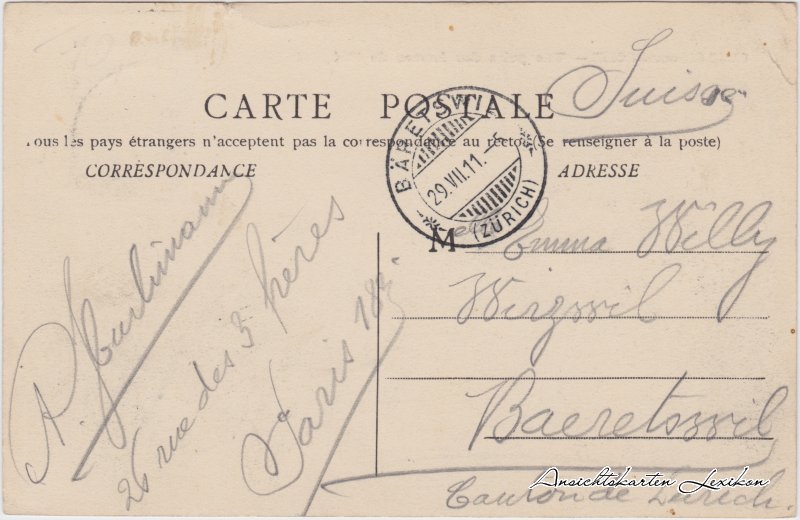 Suisse
CARTE POSTALE
Tous les pays étrangers n'acceptent pas la correspondance au recto (Se renseigner à la poste)
CORRESPONDANCE
ADRESSE
BÄRETSWIL
29.VII.11.
(ZÜRICH)
26 rue des 3 frères
Paris 18e
M elle Emma Willy
Wirzwil
Baeretswil
Canton de Zurich.
Ansichtskarten Lexikon